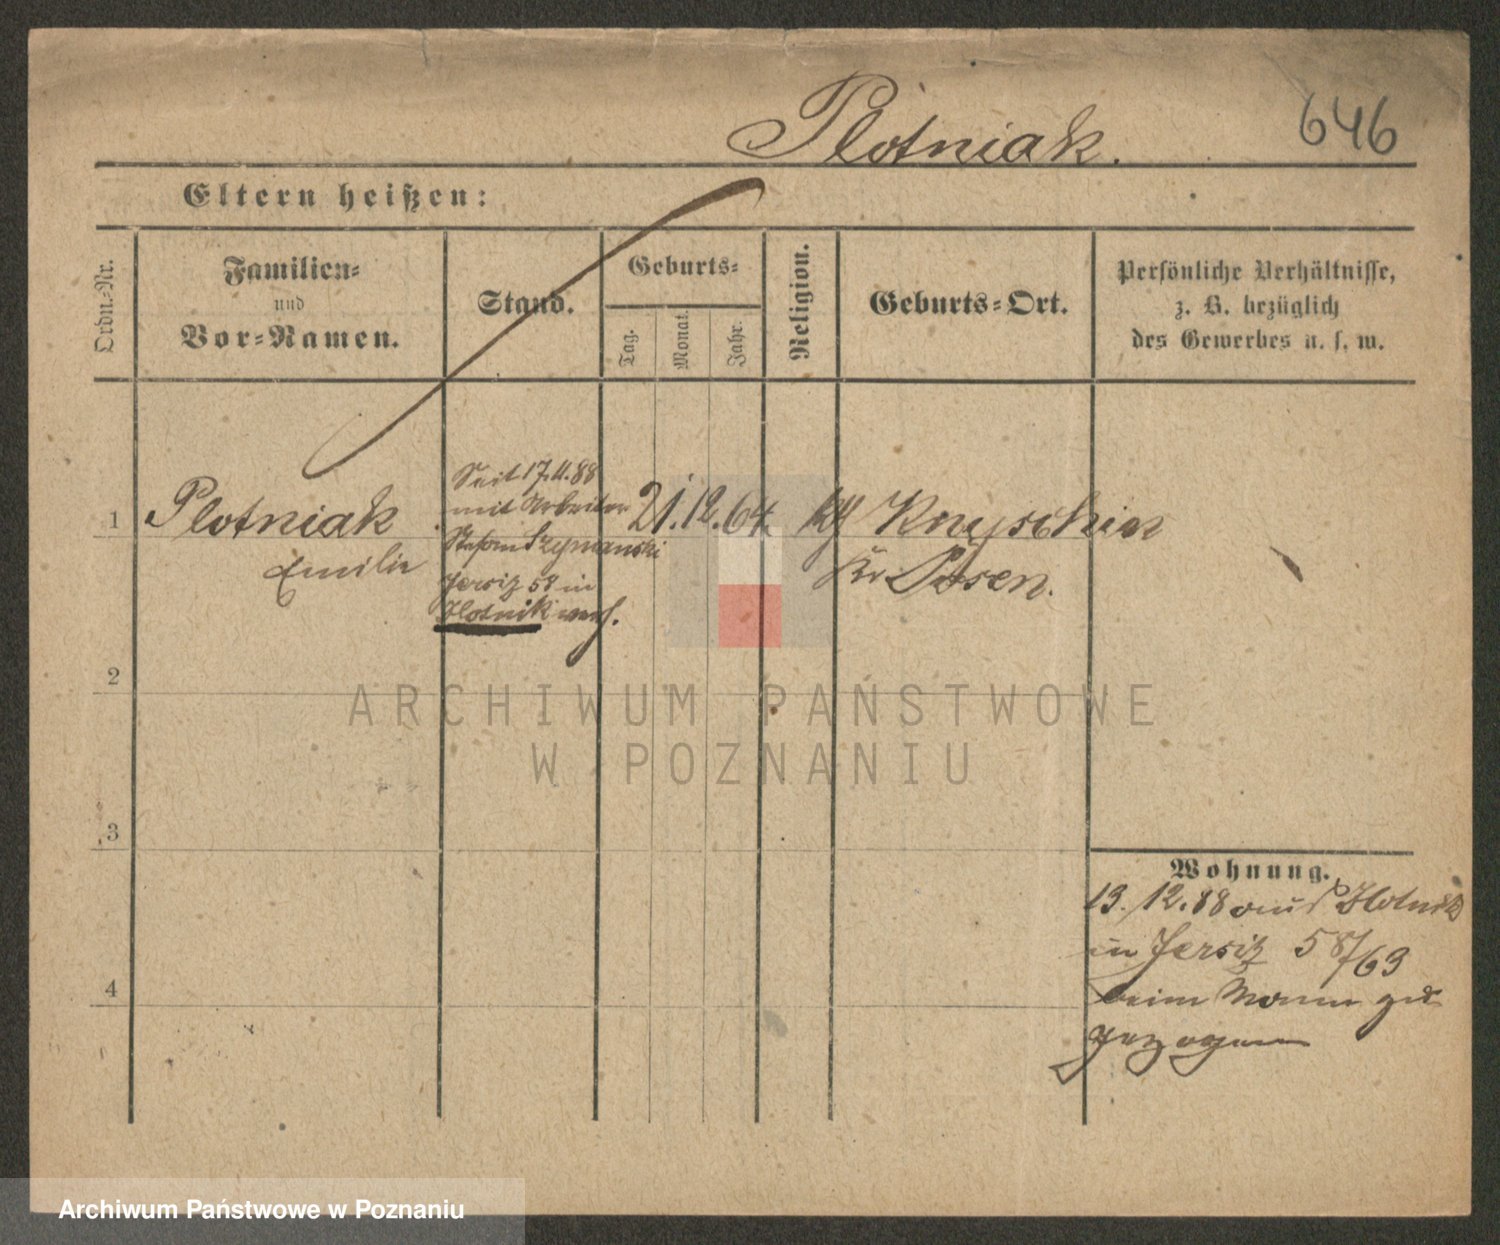 Plotniak.
646
Eltern heißen:
Ordn.-Nr.
Familien-
und
Vor-Namen.
Stand.
Geburts-
Tag.
Monat.
Jahr.
Religion.
Geburts-Ort.
Persönliche Verhältnisse,
z. B. bezüglich
des Gewerbes u. s. w.
1
Plotniak
Emilie
Seit 17.11.88
mit Arbeiter
Stefan Szymanski
Jersitz 58 in
Zlotnik verh.
21. 12. 64
Knyschin
Kr. Posen.
2
3
4
Wohnung.
13. 12. 88 aus Zlotnik
in Jersitz 58/63
beim Mann zu
gezogen
ARCHIWUM PAŃSTWOWE
W POZNANIU
Archiwum Państwowe w Poznaniu